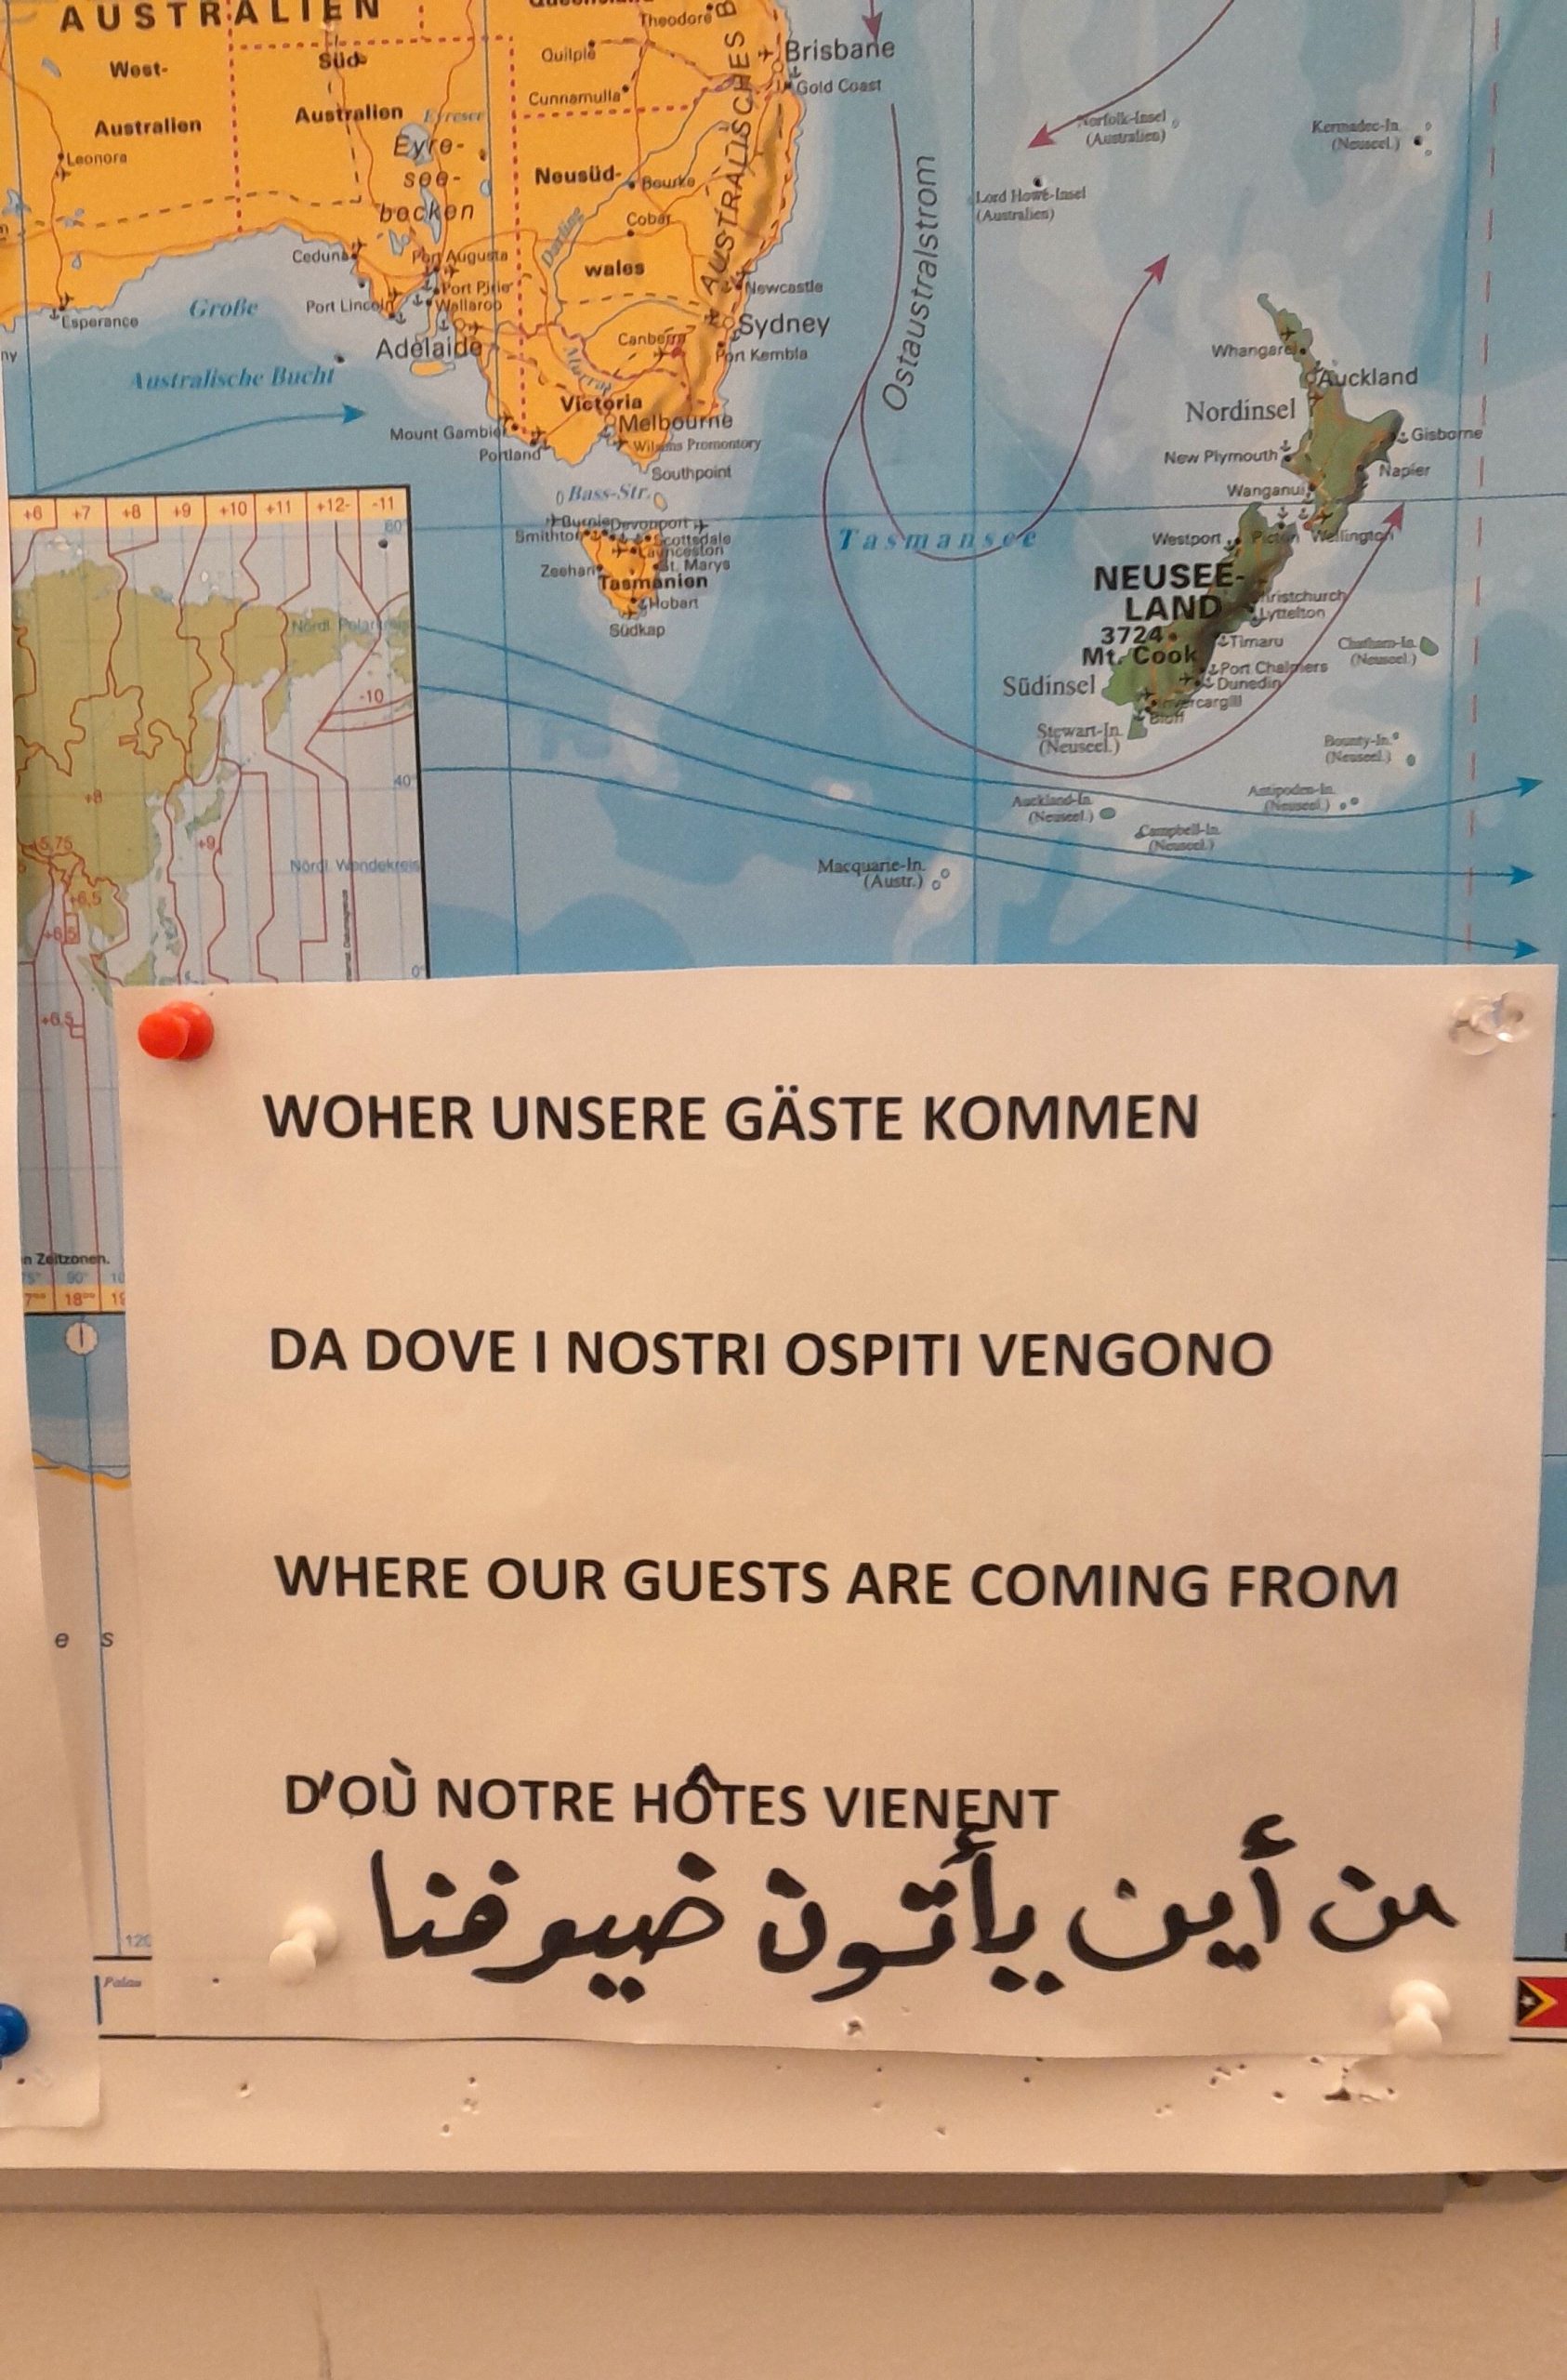 AUSTRALIEN
West-
Australien
Süd-
Australien
Leonora
Eyre-
see-
becken
Theodore
Quilpie
Cunnamulla
Brisbane
Gold Coast
Neusüd-
wales
Bourke
Cobar
Darling
AUSTRALISCHES B
Norfolk-Insel
(Australien)
Kermadec-In.
(Neuseel.)
Lord Howe-Insel
(Australien)
Ostaustralstrom
Ceduna
Port Augusta
Port Pirie
Port Lincoln
Wallaroo
Esperance
Große
Australische Bucht
Adelaide
Newcastle
Sydney
Canberra
Port Kembla
Murray
Victoria
Melbourne
Mount Gambier
Portland
Wilsons Promontory
Southpoint
Bass-Str.
Burnie
Devonport
Smithton
Scottsdale
Launceston
Zeehan
St. Marys
Tasmanien
Hobart
Südkap
Tasmansee
Whangarei
Auckland
Nordinsel
Gisborne
New Plymouth
Napier
Wanganui
Westport
Picton
Wellington
NEUSEE-
LAND
3724
Mt. Cook
Christchurch
Lyttelton
Timaru
Port Chalmers
Dunedin
Südinsel
Invercargill
Bluff
Stewart-In.
(Neuseel.)
Chatham-In.
(Neuseel.)
Bounty-In.
(Neuseel.)
Antipoden-In.
(Neuseel.)
Auckland-In.
(Neuseel.)
Campbell-In.
(Neuseel.)
Macquarie-In.
(Austr.)
+6 +7 +8 +9 +10 +11 +12- -11
60°
Nördl. Polarkreis
-10
40°
+8
+9
+5,75
Nördl. Wendekreis
+6,5
+6,5
0°
+6,5
n Zeitzonen.
90°
18⁰⁰
e s
Palau
WOHER UNSERE GÄSTE KOMMEN
DA DOVE I NOSTRI OSPITI VENGONO
WHERE OUR GUESTS ARE COMING FROM
D'OÙ NOTRE HÔTES VIENENT
من أين يأتون ضيوفنا